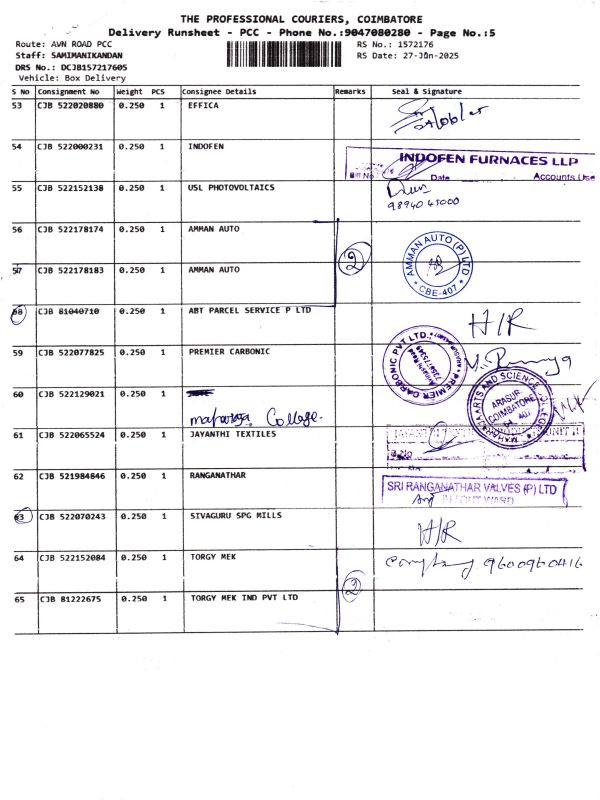 THE PROFESSIONAL COURIERS, COIMBATORE
Delivery Runsheet - PCC - Phone No.:9047080280 - Page No.:5
Route: AVN ROAD PCC
RS No.: 1572176
Staff: SAMIMANIKANDAN
RS Date: 27-Jun-2025
DRS No.: DCJB157217605
Vehicle: Box Delivery
S No Consignment No Weight PCS Consignee Details Remarks Seal & Signature
53 CJB 522020880 0.250 1 EFFICA
54 CJB 522000231 0.250 1 INDOFEN
INDOFEN FURNACES LLP
Bill No Date Accounts Use
55 CJB 522152138 0.250 1 USL PHOTOVOLTAICS
98940 45000
56 CJB 522178174 0.250 1 AMMAN AUTO
2
AMMAN AUTO (P) LTD
* CBE-407 *
57 CJB 522178183 0.250 1 AMMAN AUTO
58 CJB 81040710 0.250 1 ABT PARCEL SERVICE P LTD
H/R
59 CJB 522077825 0.250 1 PREMIER CARBONIC
PREMIER CARBONIC PVT LTD.
60 CJB 522129021 0.250 1
College.
ARTS AND SCIENCE COLLEGE
ARASUR
COIMBATORE
407
61 CJB 522065524 0.250 1 JAYANTHI TEXTILES
62 CJB 521984846 0.250 1 RANGANATHAR
SRI RANGANATHAR VALVES (P) LTD
INPUT WARD
63 CJB 522070243 0.250 1 SIVAGURU SPG MILLS
H/R
64 CJB 522152084 0.250 1 TORGY MEK
9600960416
2
65 CJB 81222675 0.250 1 TORGY MEK IND PVT LTD